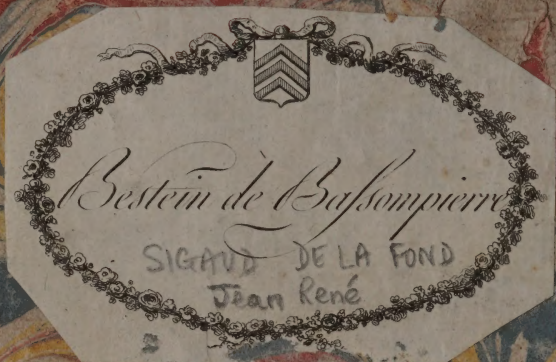 Bestein de Baſsompierre
SIGAUD DE LA FOND
Jean René